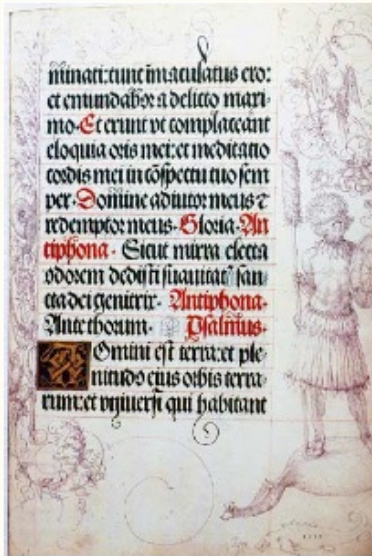 minati: tunc im̄aculatus ero:
et emundabor a delicto maxi-
mo. Et erunt vt complaceant
eloquia oris mei: et meditatio
cordis mei in cōspectu tuo sem
per. Domine adiutor meus ⁊
redemptor meus. Gloria. An
tiphona. Sicut mirra electa
odorem dedisti suauitat᷒ san-
cta dei genitrix. Antiphona.
Ante thorum. Psalmus.
Domini est terra: et ple-
nitudo eius orbis terra-
rum: et vniuersi qui habitant